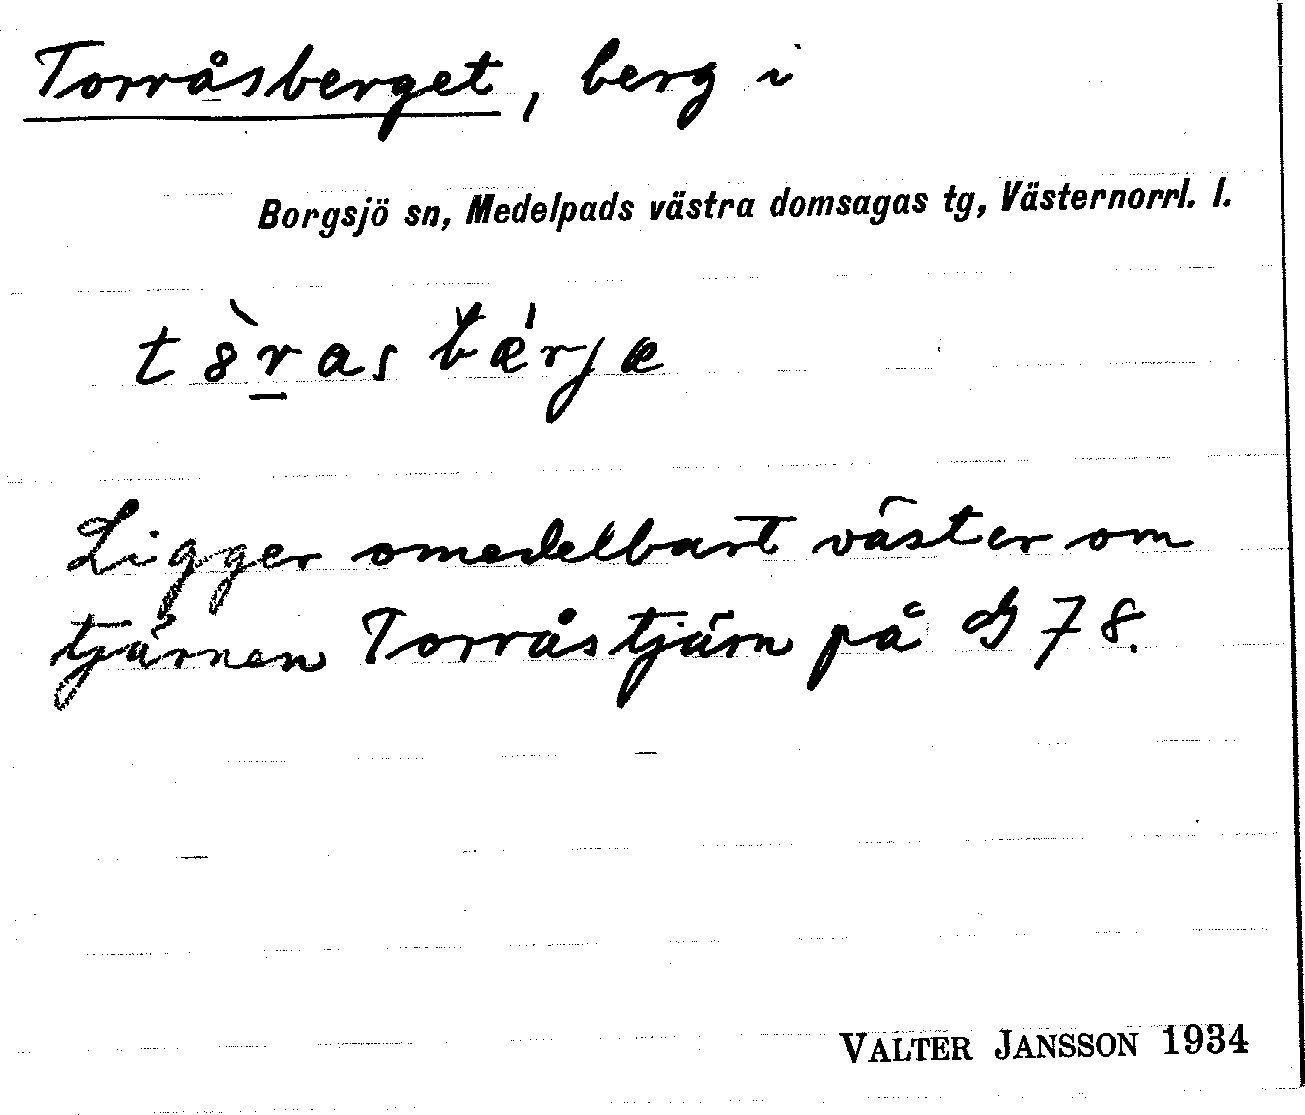 Torråsberget, berg i
Borgsjö sn, Medelpads västra domsagas tg, Västernorrl. l.
Ligger omedelbart väster om
tjärnen Torråstjärn på G 78.
VALTER JANSSON 1934